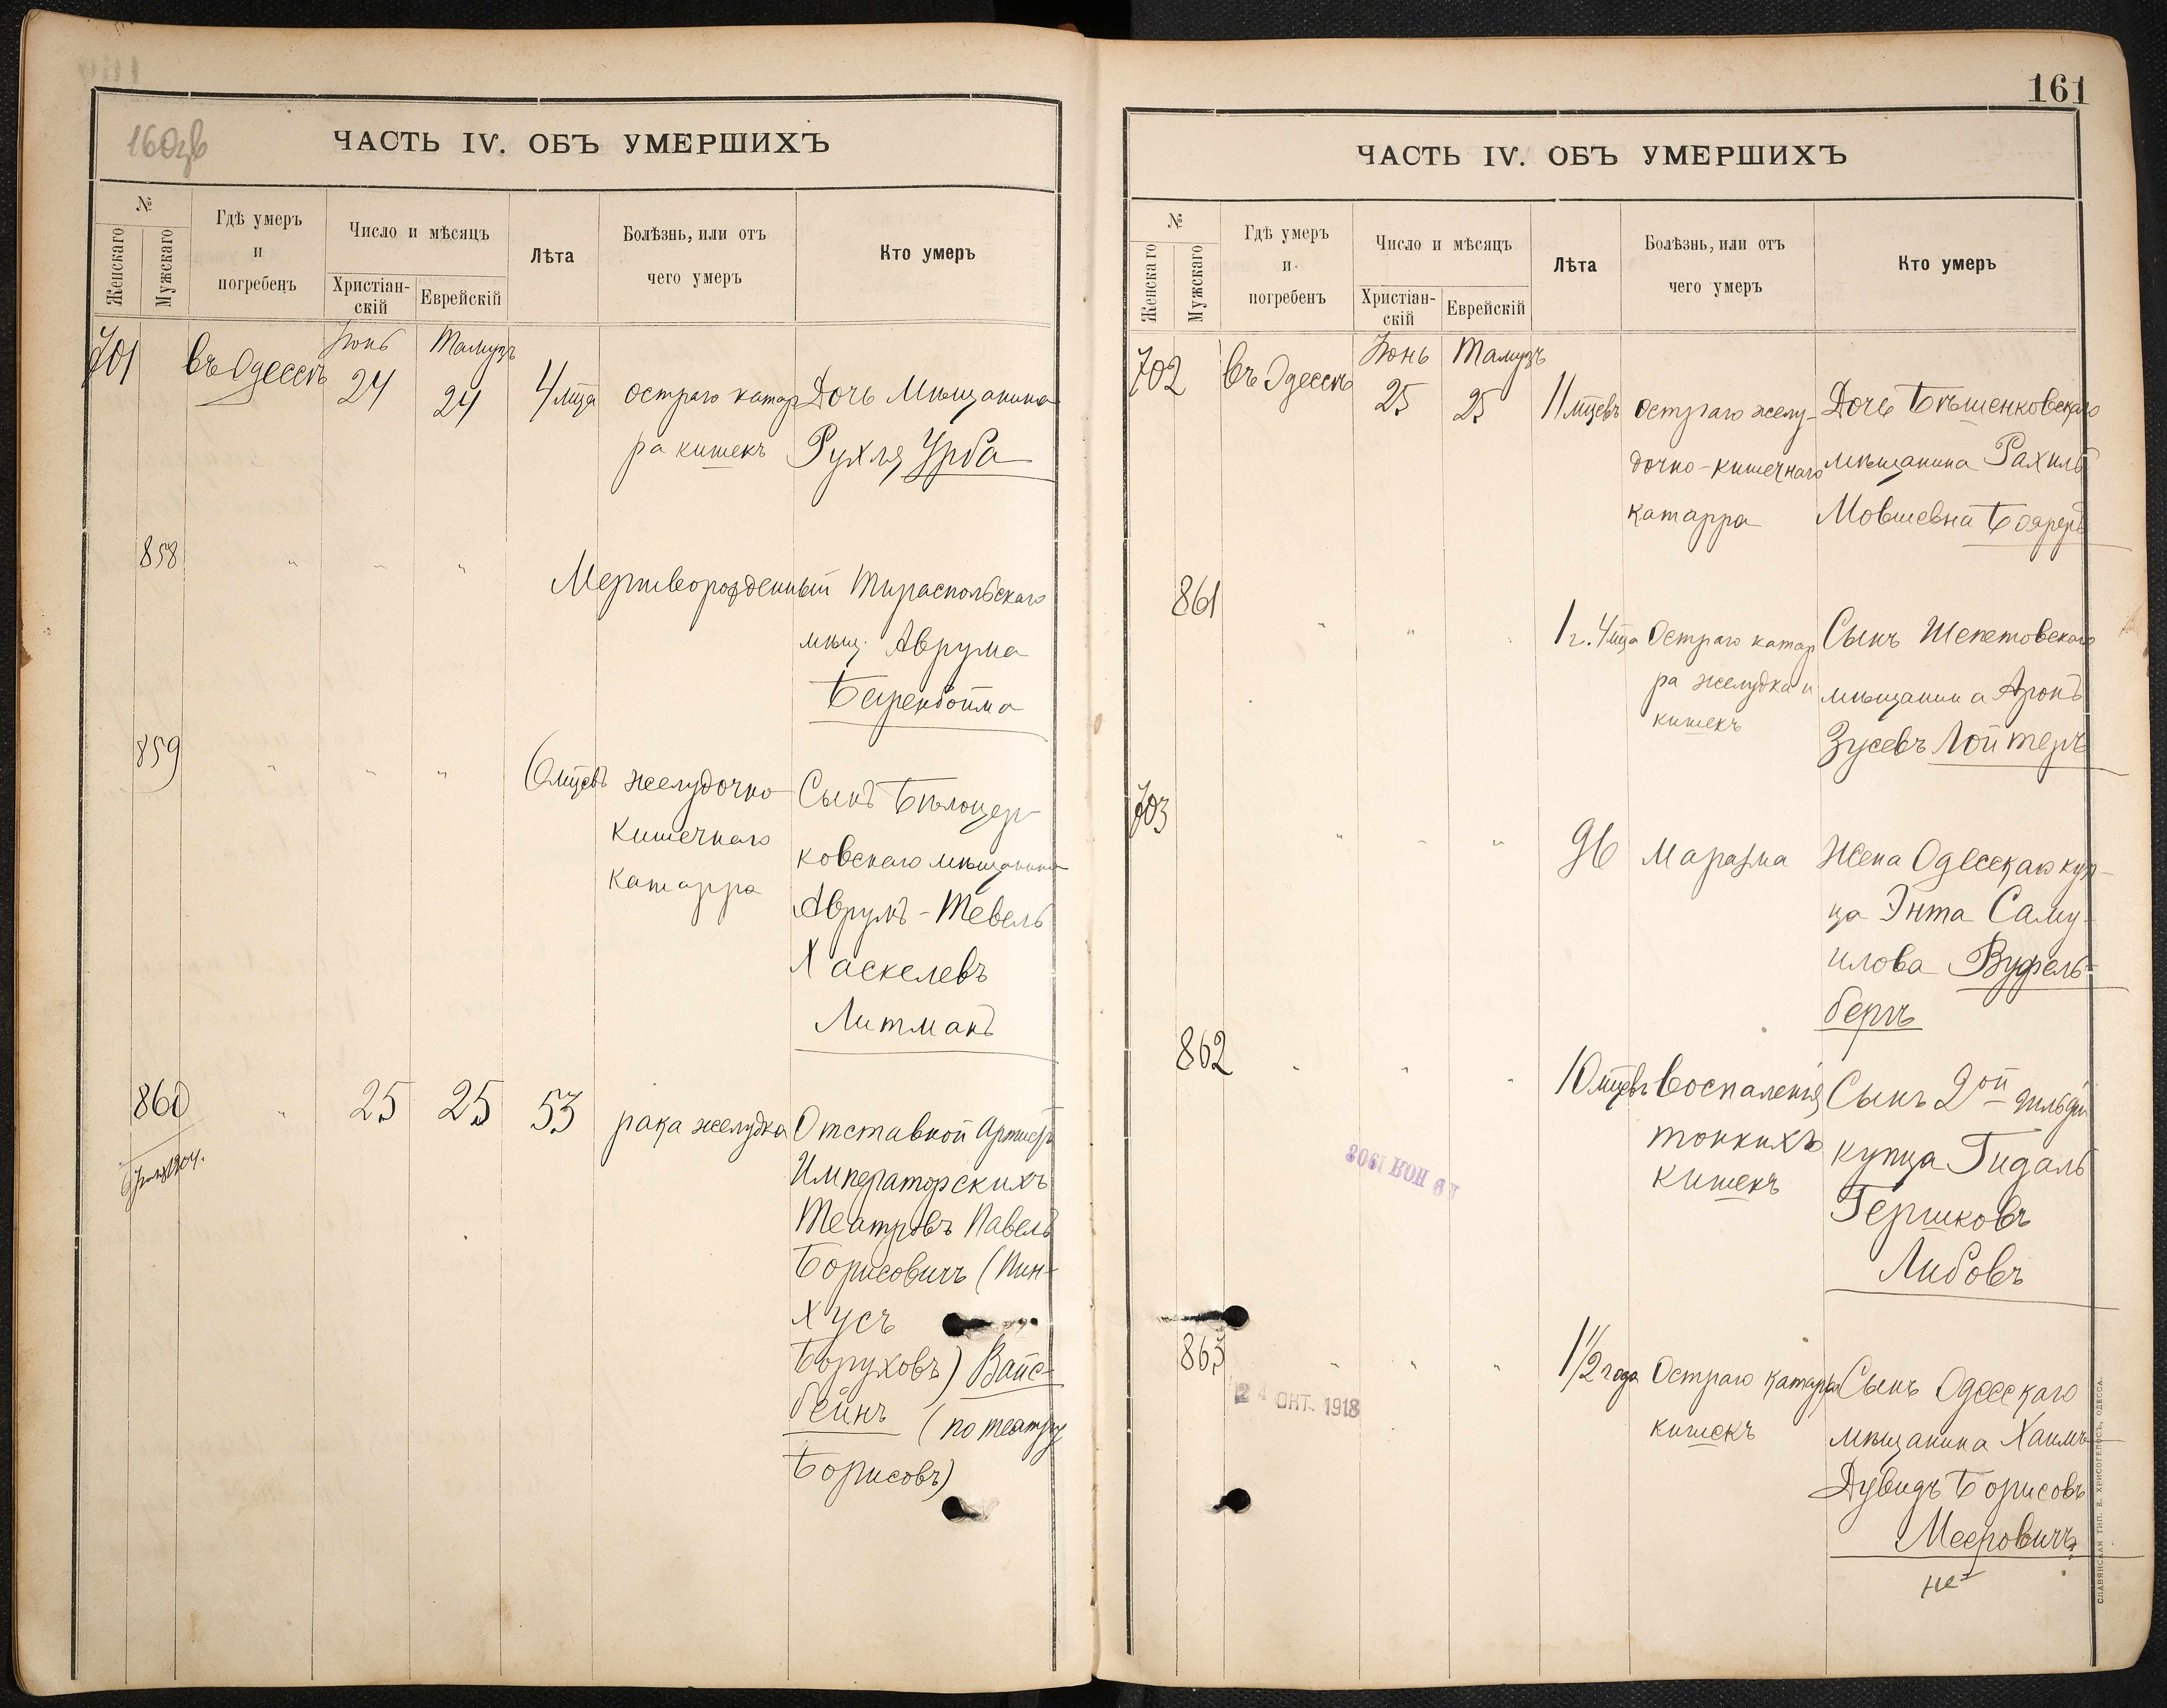 160об
ЧАСТЬ IV. ОБЪ УМЕРШИХЪ
№
Женскаго
Мужскаго
Гдѣ умеръ
и
погребенъ
Число и мѣсяцъ
Христіан-
скій
Еврейскій
Лѣта
Болѣзнь, или отъ
чего умеръ
Кто умеръ
701 въ Одессѣ Іюнь 24 Тамузъ 24 4 мца остраго катар Дочь Мѣщанина
ра кишекъ Рухля Урба
858 " " " Мертворожденный Тираспольскаго
мѣщ. Аврума
Беренбойма
859 " " " 6 мцевъ желудочно Сынъ Бѣлоцер-
кишечнаго ковскаго мѣщанина
катарра Аврумъ-Тевель
Хаскелевъ
Литманъ
860 " 25 25 53 рака желудка Отставной Артистъ
Императорскихъ
Театровъ Павелъ
Борисовичъ (Пин-
хусъ
Боруховъ) Вайс-
бейнъ (по театру
Борисовъ)
161
ЧАСТЬ IV. ОБЪ УМЕРШИХЪ
№
Женскаго
Мужскаго
Гдѣ умеръ
и
погребенъ
Число и мѣсяцъ
Христіан-
скій
Еврейскій
Лѣта
Болѣзнь, или отъ
чего умеръ
Кто умеръ
702 въ Одессѣ Іюнь 25 Тамузъ 25 11 мцевъ остраго желу- Дочь Бѣшенковскаго
дочно-кишечнаго мѣщанина Рахиль
катарра Мовшевна Бояреръ
861 " " " 1 г. 4 мца Остраго катар Сынъ Шепетовскаго
ра желудка и мѣщанина Аронъ
кишекъ Зусевъ Лойтеръ
703 " " " 96 Маразма Жена Одесскаго куп-
ца Энта Саму-
илова Вуфель-
бергъ
862 " " " 10 мцевъ Воспаленія Сынъ 2ой гильдіи
тонкихъ купца Гидаль
кишекъ Гершковъ
Либовъ
19 НОЯ 1908
863 " " " 1 1/2 года Остраго катарра Сынъ Одесскаго
кишекъ мѣщанина Хаимъ
Дувидъ Борисовъ
Мееровичъ
24 ОКТ. 1918
СЛАВЯНСКАЯ ТИП. Е. ХРИСОГЕЛОСЪ, ОДЕССА.